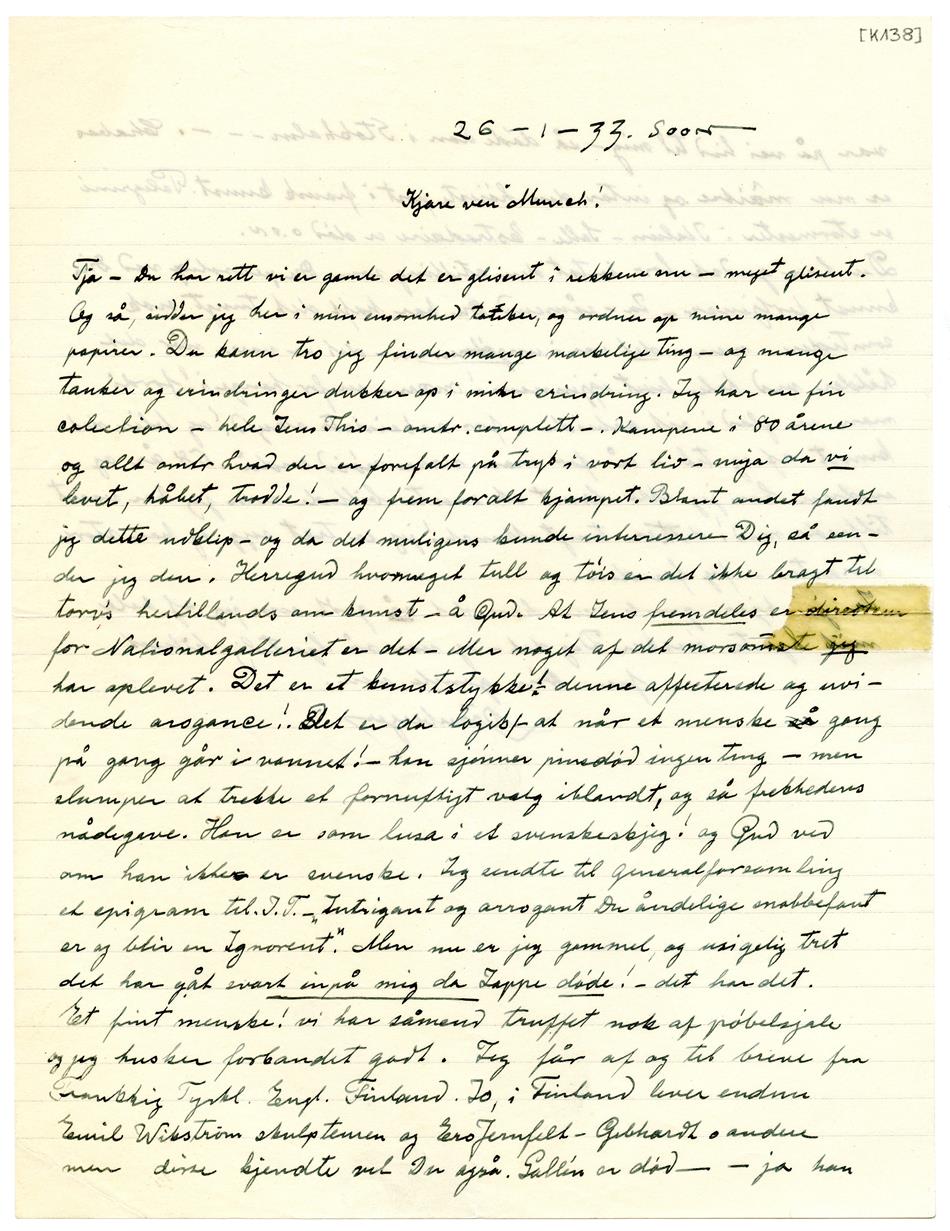 [K138]
26 – 1 – 33. Soon
Kjære ven Munch!
Tja – Du har rett vi er gamle det er glisent i rekkene enn – meget glisent.
Og så, sidder jeg her i min ensomhed tænker, og ordner op mine mange
papirer. Du kann tro jeg finder mange mærkelige ting – og mange
tanker og erindringer dukker op i min erindring. Jeg har en fin
colection – hele Jens This – omtr. complett –. Kampene i 80 årene
og allt omtr hvad der er forefalt på tryk i vort liv – mija da vi
levet, håbet, trodde! – og frem foralt kjæmpet. Blant andet fandt
jeg dette udklip – og da det muligens kunde interressere Dig, så sen-
der jeg den. Herregud hvormeget tull og töis er det ikke bragt til
torvs hertillands om kunst – å Gud. At Jens fremdeles er directeur
for Nationalgalleriet er det – eller noget af det morsomste jeg
har oplevet. Det er et kunststykke! denne affecterede og uvi-
dende arogance! Det er da logisk at når et menske så gang
på gang går i vannet! – han sjönner pinedöd ingen ting – men
slumper at trekke et fornuftigt valg iblandt, og så frekhedens
nådegave. Han er som lusa i et svenskeskjeg! og Gud ved
om han ikke er svenske. Jeg sendte til generalforsamling
et epigram til. J.T. – „Intrigant og arrogant Du åndelige snobbefant
er og blir en Ignorent". Men nu er jeg gammel, og usigelig tret
det har gåt svært inpå mig da Jappe döde! – det har det.
Et fint menske! vi har såmend truffet nok af pöbelsjæle
og jeg husker forbandet godt. Jeg får af og til breve fra
Frankrig Tyskl. Engl. Finland. Jo, i Finland lever endnu
Emil Wikström skulptøren og Ero Jernfelt – Gebhardt o andere
men disse kjendte vel Du også. Gallén er död — – ja han